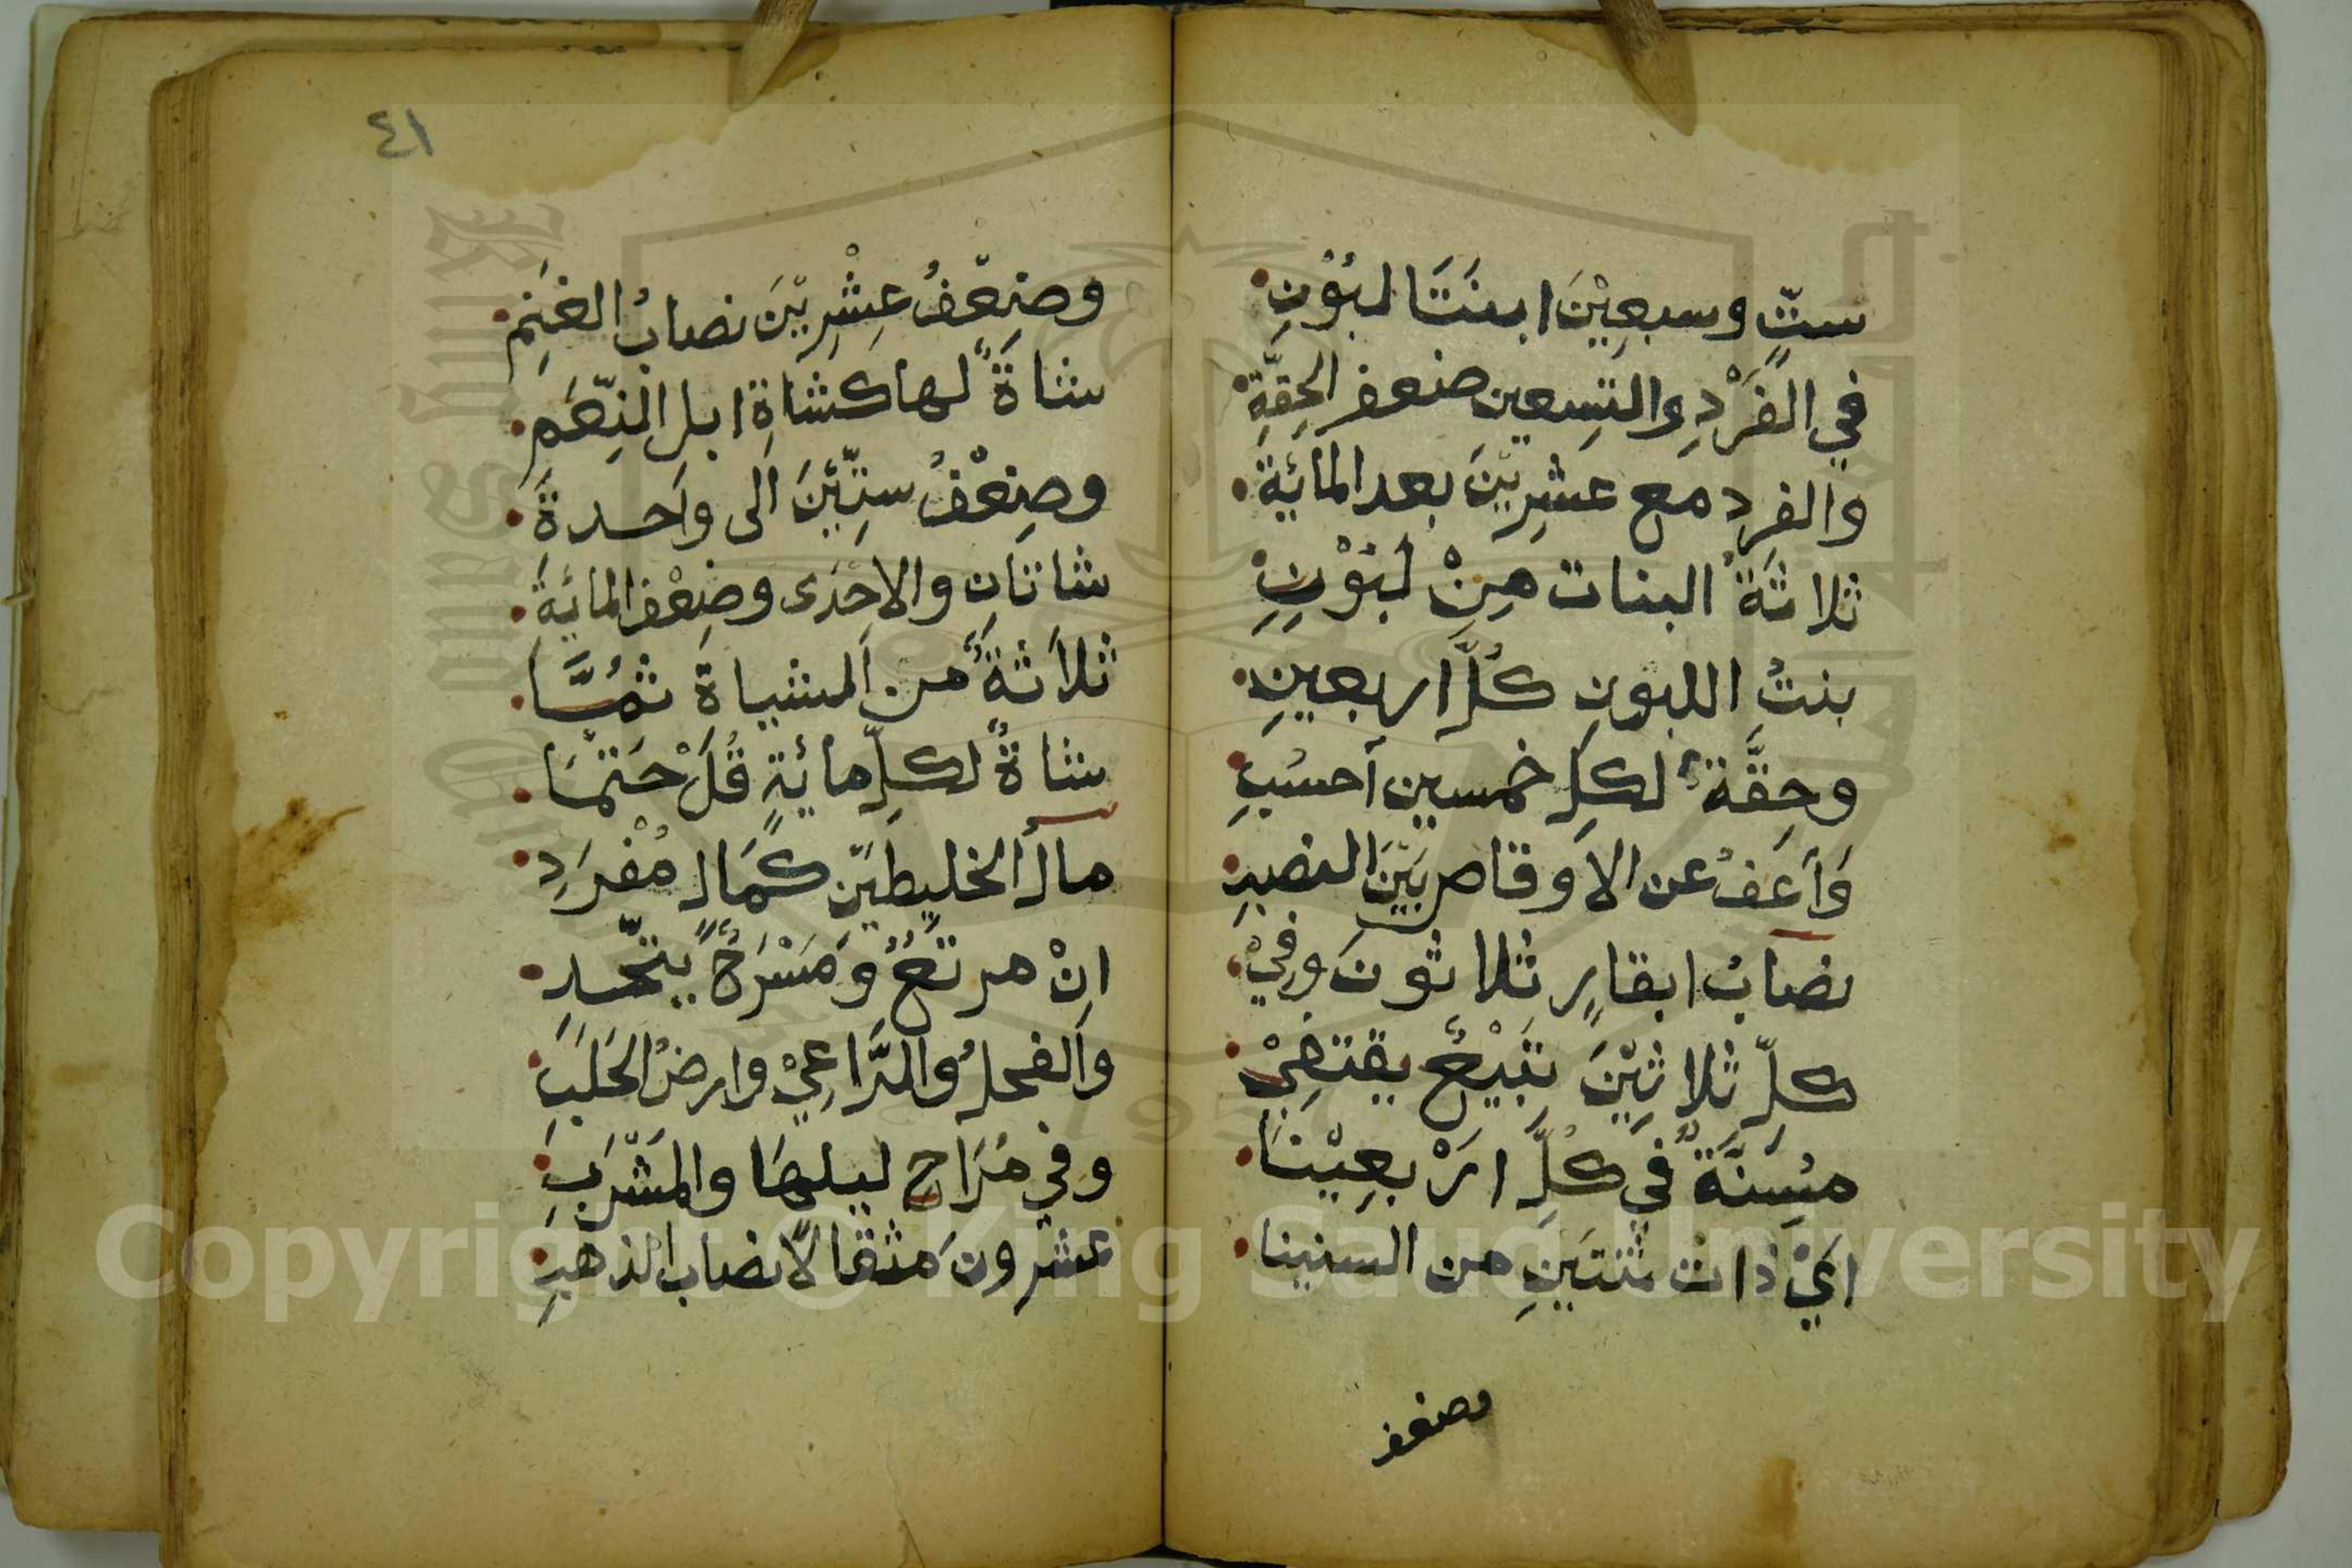 ستٍّ وسبعِيْنَ ابنَتَا لبُوْنِ
في الفَرْدِ والتِسعين ضعف الحِقَّةِ
والفردِ مع عشرِيْنَ بعد المائةِ
ثلاثَةُ البنات مِنْ لَبُوْنِ
بنتُ اللبونِ كلَّ اربعينِ
وحِقَّةٌ لكلِ خمسين احسُبِ
وَاعفُ عن الاوقاص بَيْنَ النصبِ
نصابُ ابقارٍ ثلاثونَ وفيْ
كلِّ ثلاثِيْنَ تَبيْعٌ يقتفِيْ
مُسِنَّةٌ في كلِّ ارْبعِيْنَا
ايْ ذات ثنتَينِ من السنينا
وضعف
٤١
وضِعْفُ عِشْرِيْنَ نصابُ الغَنَمِ
شاةٌ لها كشاةِ ابل النِّعَمِ
وضِعْفُ ستِّيْنَ الى واحدةِ
شاتانِ والاحْدَى وضِعْف المائةِ
ثلاثةٌ من الشياة ثمَّا
شاةٌ لكلِّ مائةٍ قُلْ حَتْمَا
مالُ الخليطَيْنِ كمَال مُفْرَدِ
انْ مرتَعٌ وَمَسْرَحٌ يتّحدِ
والفحلُ والرَّاعِيْ وارضُ الحَلَبِ
وفي مُرَاح ليلها والمَشْرَبِ
عشرونَ مثقالاً نصاب الذهبِ
Copyright © King Saud University